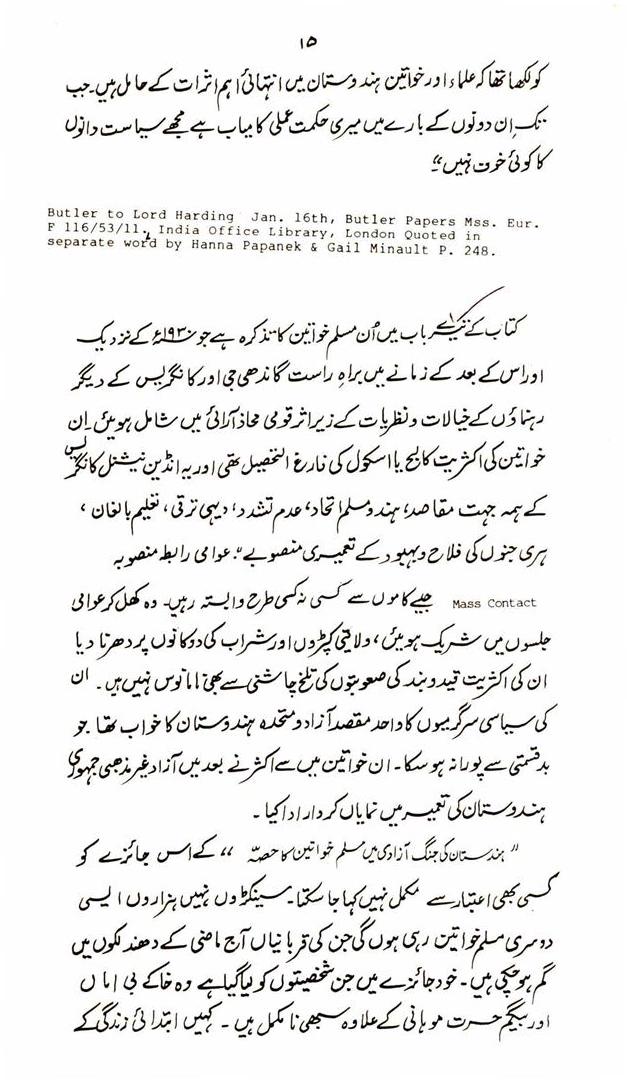 ۱۵
کو لکھا تھا کہ علماء اور خواتین ہندوستان میں انتہائی اہم اثرات کے حامل ہیں۔ جب
تک اِن دونوں کے بارے میں میری حکمت عملی کامیاب ہے مجھے سیاست دانوں
کا کوئی خوف نہیں"
Butler to Lord Harding Jan. 16th, Butler Papers Mss. Eur.
F 116/53/11, India Office Library, London Quoted in
separate word by Hanna Papanek & Gail Minault P. 248.
کتاب کے تیسرے باب میں اُن مسلم خواتین کا تذکرہ ہے جو ۱۹۳۰ء کے نزدیک
اور اس کے بعد کے زمانے میں براہِ راست گاندھی جی اور کانگریس کے دیگر
رہنماؤں کے خیالات و نظریات کے زیر اثر قومی محاذ آرائی میں شامل ہوئیں۔ اِن
خواتین کی اکثریت کالج یا اسکول کی فارغ التحصیل تھی اور یہ انڈین نیشنل کانگریس
کے ہمہ جہت مقاصد، ہندو مسلم اتحاد، عدم تشدد، دیہی ترقی، تعلیم بالغان،
ہری جنوں کی فلاح و بہبود کے تعمیری منصوبے"۔ عوامی رابطہ منصوبہ
Mass Contact جیسے کاموں سے کسی نہ کسی طرح وابستہ رہیں۔ وہ کھل کر عوامی
جلسوں میں شریک ہوئیں، ولایتی کپڑوں اور شراب کی دوکانوں پر دھرنا دیا
ان کی اکثریت قید و بند کی صعوبتوں کی تلخ چاشنی سے بھی نامانوس نہیں ہیں۔ ان
کی سیاسی سرگرمیوں کا واحد مقصد آزاد و متحدہ ہندوستان کا خواب تھا جو
بدقسمتی سے پورا نہ ہو سکا۔ ان خواتین میں سے اکثر نے بعد میں آزاد غیر مذہبی جمہوری
ہندوستان کی تعمیر میں نمایاں کردار ادا کیا۔
"ہندستان کی جنگ آزادی میں مسلم خواتین کا حصہ" کے اس جائزے کو
کسی بھی اعتبار سے مکمل نہیں کہا جا سکتا۔ سینکڑوں نہیں ہزاروں ایسی
دوسری مسلم خواتین رہی ہوں گی جن کی قربانیاں آج ماضی کے دھندلکوں میں
گم ہو چکی ہیں۔ خود جائزے میں جن شخصیتوں کو لیا گیا ہے وہ خاکے بی اماں
اور بیگم حسرت موہانی کے علاوہ سبھی نامکمل ہیں۔ کہیں ابتدائی زندگی کے